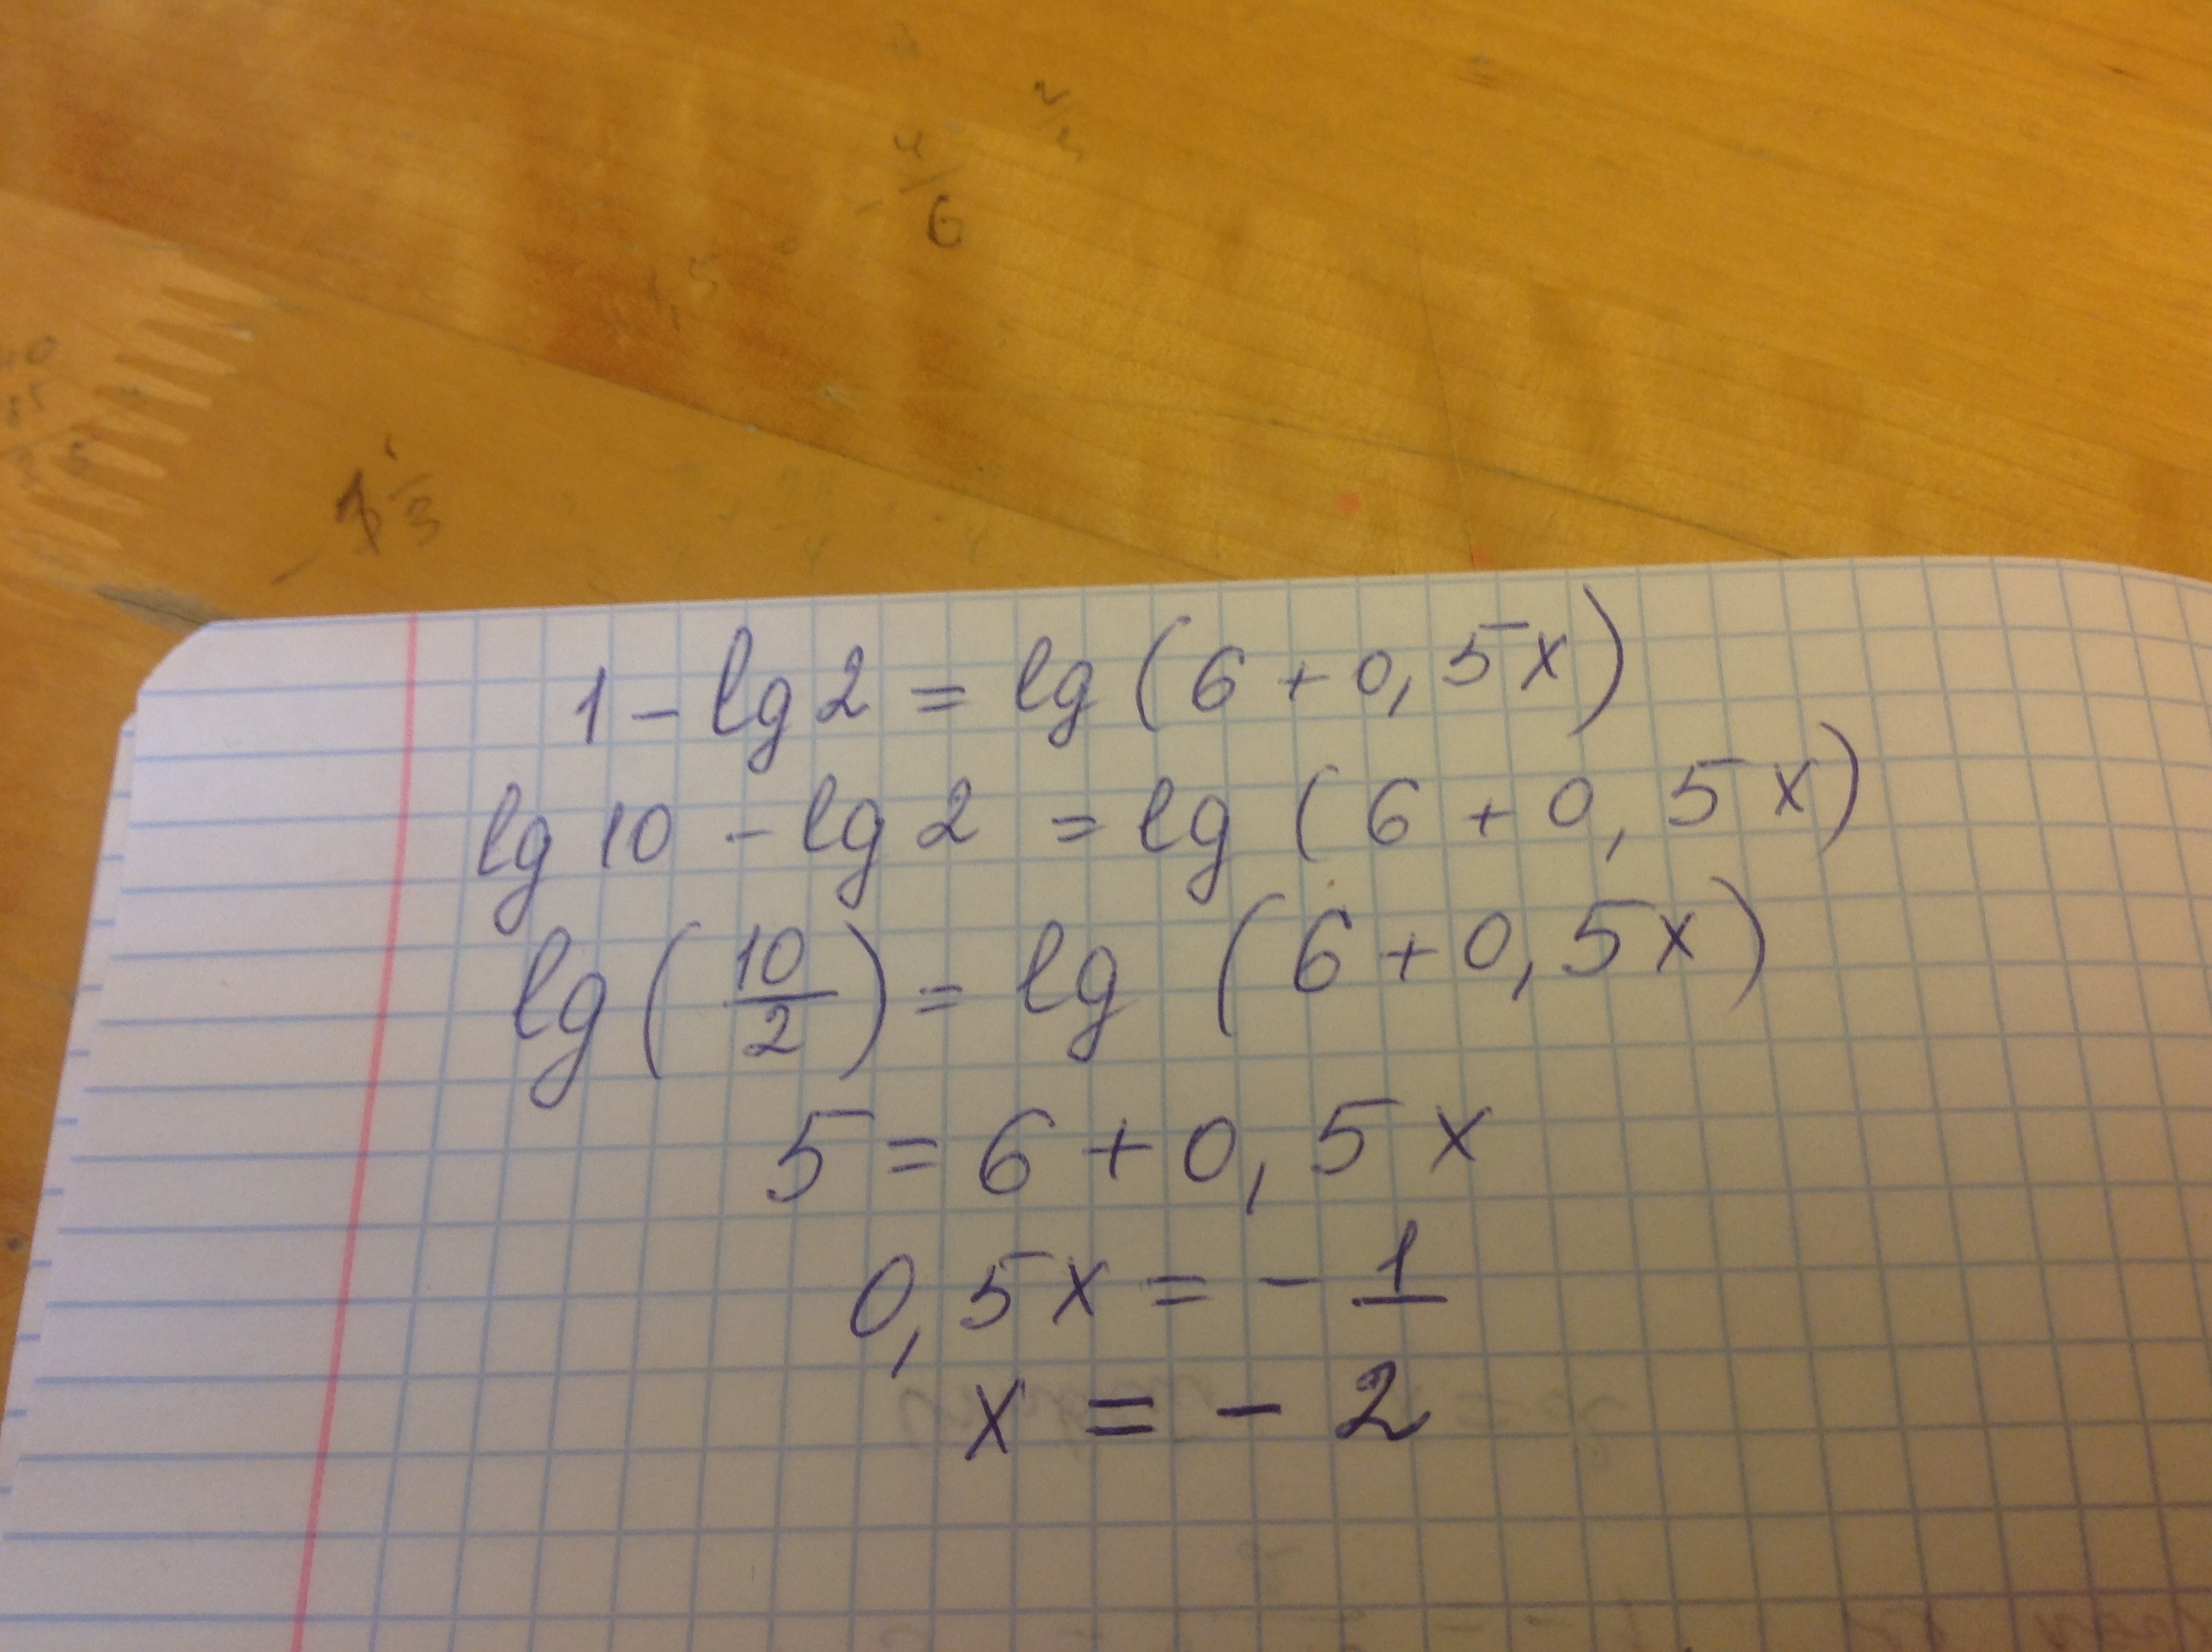 4/6
1 - lg 2 = lg (6 + 0,5x)
lg 10 - lg 2 = lg (6 + 0,5x)
lg (10/2) = lg (6 + 0,5x)
5 = 6 + 0,5x
0,5x = - 1
x = - 2